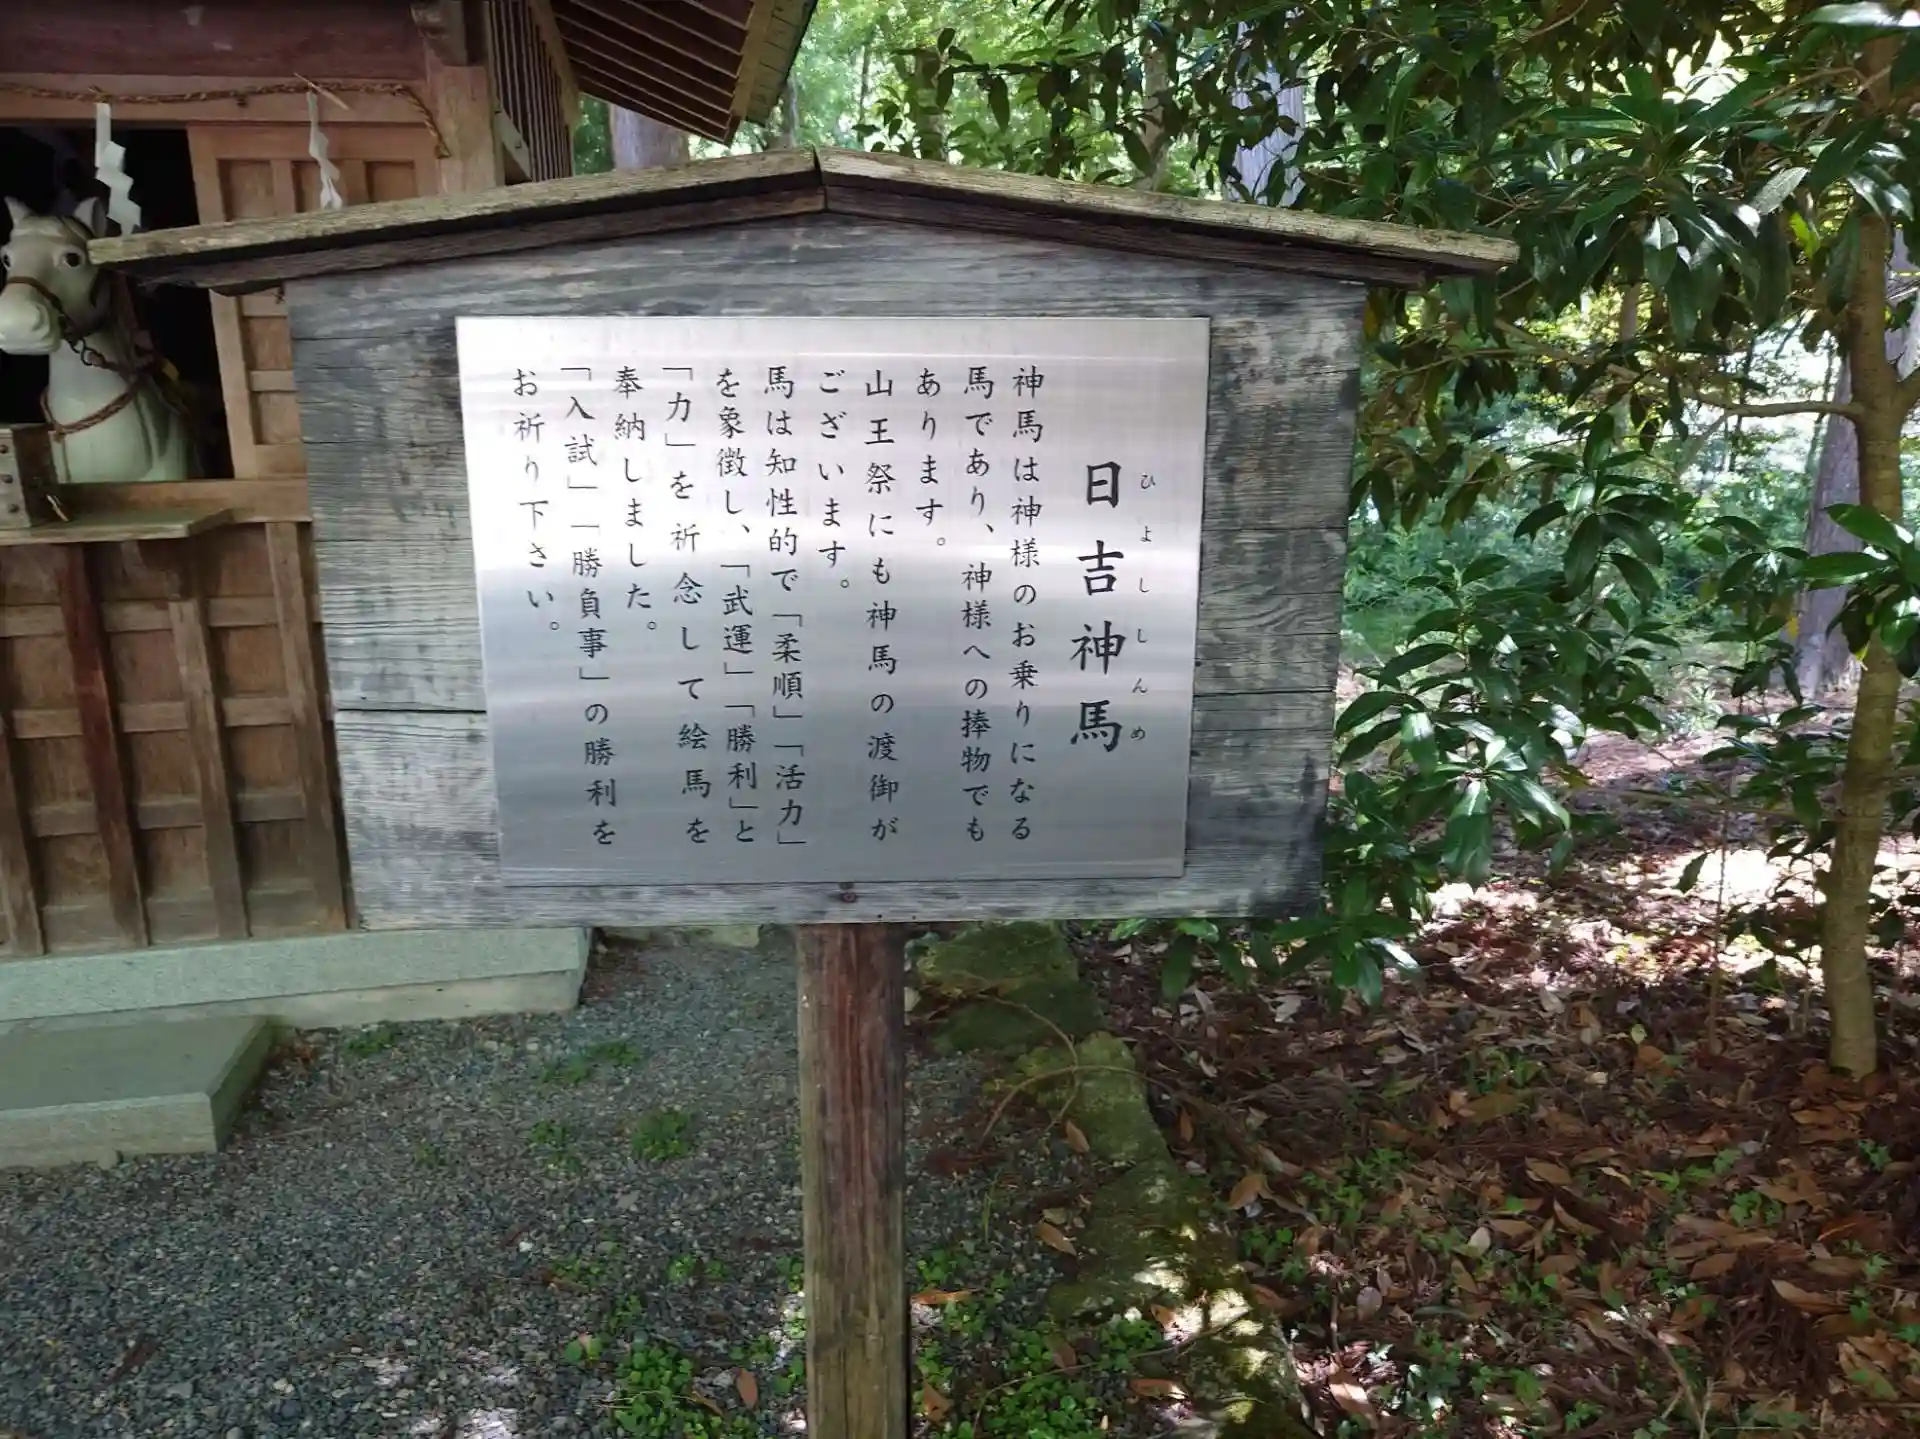 日吉神馬
ひよししんめ
神馬は神様のお乗りになる
馬であり、神様への捧物でも
あります。
山王祭にも神馬の渡御が
ございます。
馬は知性的で「柔順」「活力」
を象徴し、「武運」「勝利」と
「力」を祈念して絵馬を
奉納しました。
「入試」「勝負事」の勝利を
お祈り下さい。